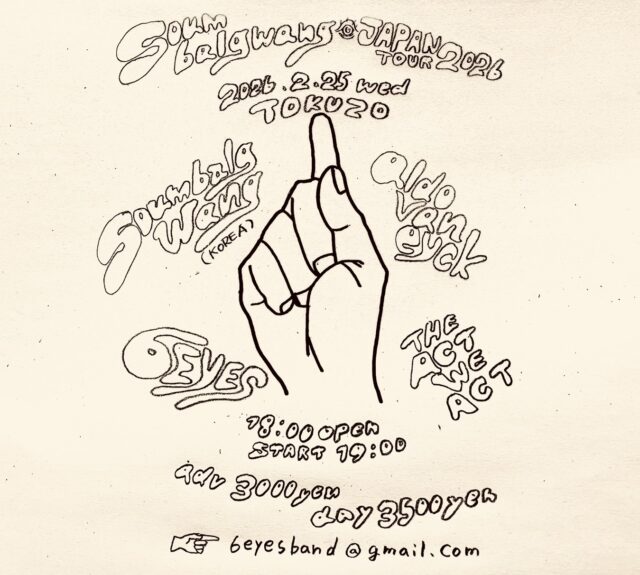 Soum
balgwang
JAPAN
TOUR 2026
2026.2.25 wed
TOKUZO
Soumbalg
wang
(KOREA)
aldo
van
eyck
6EYES
THE
ACT
WE
ACT
18:00 OPEN
START 19:00
adv 3000yen
day 3500yen
6eyesband@gmail.com